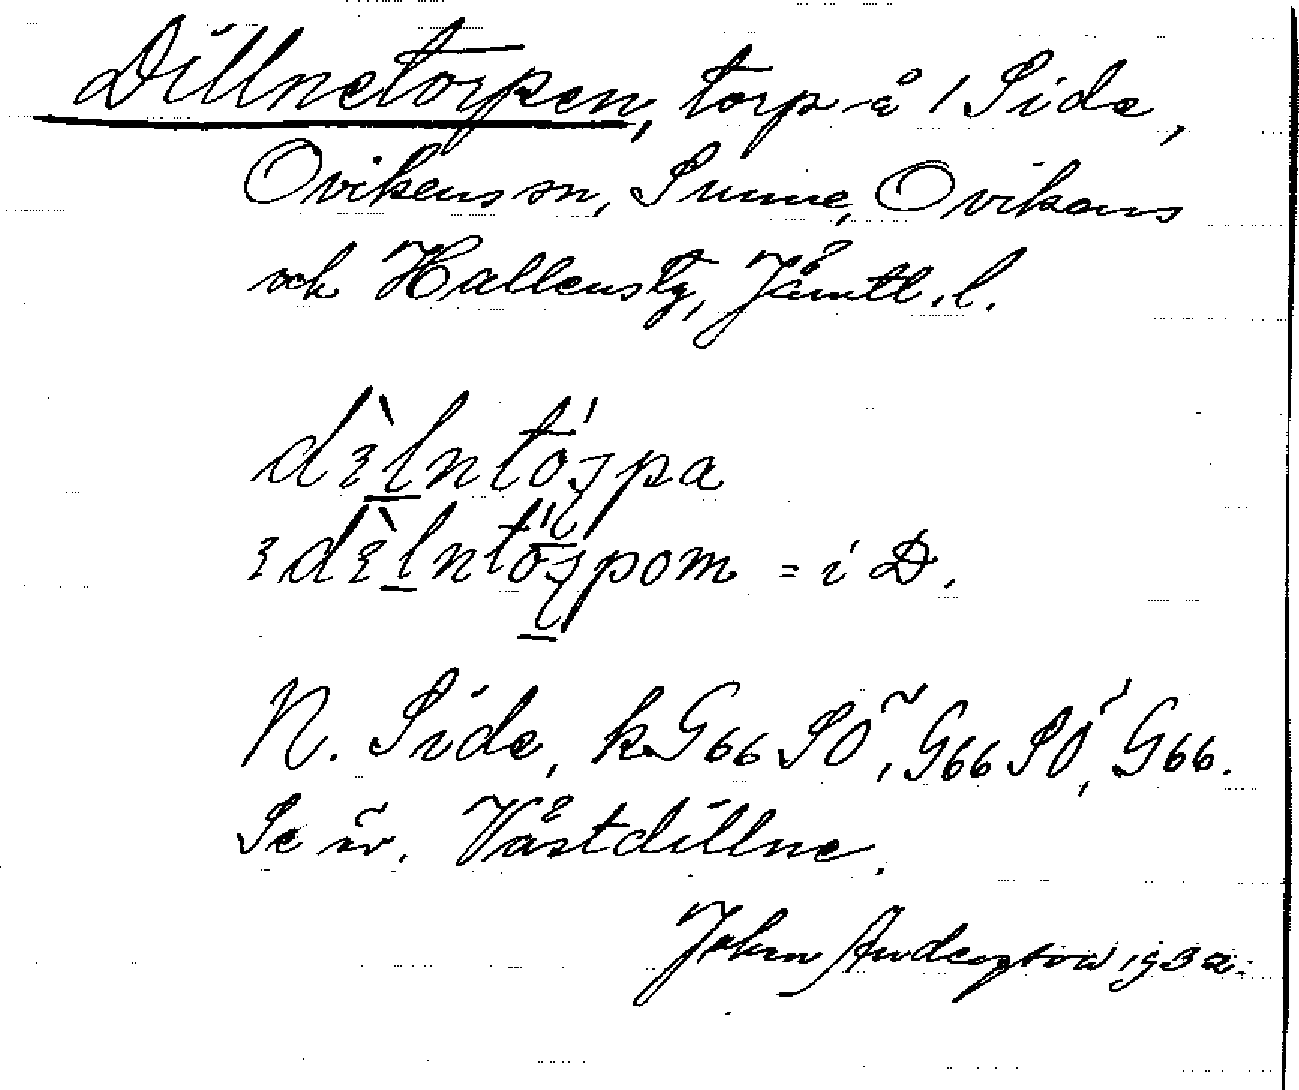 Dillnetorpen, torp å 1 Side,
Ovikens sn, Sunne, Ovikens
och Hallens tg, Jämtl. l.
= i D.
N. Side, k G66 SO, G66 SO, G66.
Se äv. Västdillne.
John Andersson 1932.